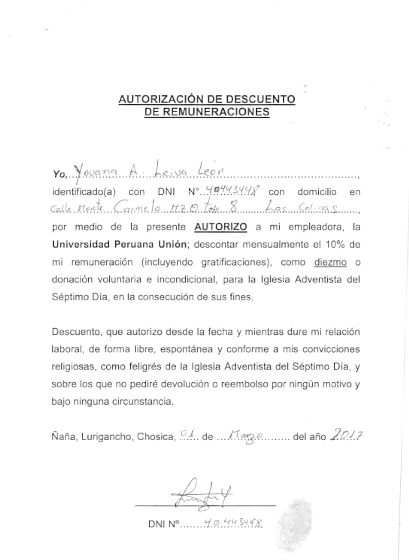 AUTORIZACIÓN DE DESCUENTO
DE REMUNERACIONES
Yo, Yovana A. Leiva León
identificado(a) con DNI N° 40443498 con domicilio en
Calle Monte Carmelo MZ. 8 Las Colinas
por medio de la presente AUTORIZO a mi empleadora, la
Universidad Peruana Unión; descontar mensualmente el 10% de
mi remuneración (incluyendo gratificaciones), como diezmo o
donación voluntaria e incondicional, para la Iglesia Adventista del
Séptimo Día, en la consecución de sus fines.
Descuento, que autorizo desde la fecha y mientras dure mi relación
laboral, de forma libre, espontánea y conforme a mis convicciones
religiosas, como feligrés de la Iglesia Adventista del Séptimo Día, y
sobre los que no pediré devolución o reembolso por ningún motivo y
bajo ninguna circunstancia.
Ñaña, Lurigancho, Chosica, 01 de Marzo del año 2017
DNI N° 40443498